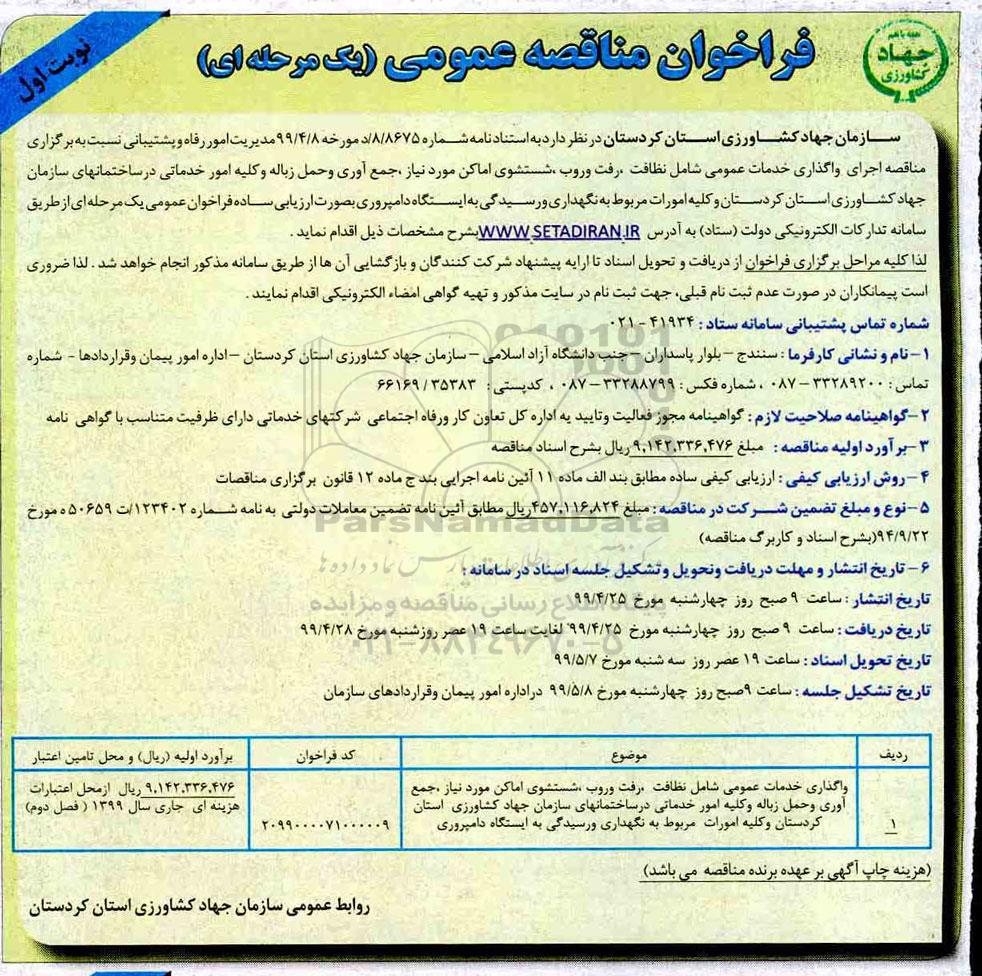 نوبت اول
فراخوان مناقصه عمومی (یک مرحله ای)
همه با هم
جهاد
کشاورزی
سازمان جهاد کشاورزی استان کردستان در نظر دارد به استناد نامه شماره ۸/۸۶۷۵/د مورخه ۹۹/۴/۸ مدیریت امور رفاه و پشتیبانی نسبت به برگزاری
مناقصه اجرای واگذاری خدمات عمومی شامل نظافت ،رفت وروب ،شستشوی اماکن مورد نیاز ،جمع آوری وحمل زباله وکلیه امور خدماتی درساختمانهای سازمان
جهاد کشاورزی استان کردستان و کلیه امورات مربوط به نگهداری ورسیدگی به ایستگاه دامپروری بصورت ارزیابی ساده فراخوان عمومی یک مرحله ای از طریق
سامانه تدارکات الکترونیکی دولت (ستاد) به آدرس WWW.SETADIRAN.IR بشرح مشخصات ذیل اقدام نماید .
لذا کلیه مراحل برگزاری فراخوان از دریافت و تحویل اسناد تا ارایه پیشنهاد شرکت کنندگان و بازگشایی آن ها از طریق سامانه مذکور انجام خواهد شد . لذا ضروری
است پیمانکاران در صورت عدم ثبت نام قبلی، جهت ثبت نام در سایت مذکور و تهیه گواهی امضاء الکترونیکی اقدام نمایند .
شماره تماس پشتیبانی سامانه ستاد : ۴۱۹۳۴ - ۰۲۱
۱-نام و نشانی کارفرما : سنندج –بلوار پاسداران –جنب دانشگاه آزاد اسلامی – سازمان جهاد کشاورزی استان کردستان –اداره امور پیمان وقراردادها - شماره
تماس : ۳۳۲۸۹۲۰۰ – ۰۸۷ ، شماره فکس : ۳۳۲۸۸۷۹۹ – ۰۸۷ ، کدپستی : ۳۵۳۸۳ / ۶۶۱۶۹
۲-گواهینامه صلاحیت لازم : گواهینامه مجوز فعالیت وتایید یه اداره کل تعاون کار ورفاه اجتماعی شرکتهای خدماتی دارای ظرفیت متناسب با گواهی نامه
۳-برآورد اولیه مناقصه : مبلغ ۹,۱۴۲,۳۳۶,۴۷۶ ریال بشرح اسناد مناقصه
۴-روش ارزیابی کیفی : ارزیابی کیفی ساده مطابق بند الف ماده ۱۱ آئین نامه اجرایی بند ج ماده ۱۲ قانون برگزاری مناقصات
۵-نوع و مبلغ تضمین شرکت در مناقصه : مبلغ ۴۵۷,۱۱۶,۸۲۴ ریال مطابق آئین نامه تضمین معاملات دولتی به نامه شماره ۱۲۳۴۰۲/ت ۵۰۶۵۹ ه مورخ
۹۴/۹/۲۲(بشرح اسناد و کاربرگ مناقصه)
۶- تاریخ انتشار و مهلت دریافت وتحویل وتشکیل جلسه اسناد در سامانه :
تاریخ انتشار : ساعت ۹ صبح روز چهارشنبه مورخ ۹۹/۴/۲۵
تاریخ دریافت : ساعت ۹ صبح روز چهارشنبه مورخ ۹۹/۴/۲۵ لغایت ساعت ۱۹ عصر روزشنبه مورخ ۹۹/۴/۲۸
تاریخ تحویل اسناد : ساعت ۱۹ عصر روز سه شنبه مورخ ۹۹/۵/۷
تاریخ تشکیل جلسه : ساعت ۹صبح روز چهارشنبه مورخ ۹۹/۵/۸ دراداره امور پیمان وقراردادهای سازمان
ParsNamadData
پایگاه اطلاع رسانی مناقصه و مزایده
۰۲۱-۸۸۳۴۹۶۷۰-۵
ردیف موضوع کد فراخوان برآورد اولیه (ریال) و محل تامین اعتبار
۱ واگذاری خدمات عمومی شامل نظافت ،رفت وروب ،شستشوی اماکن مورد نیاز ،جمع
آوری وحمل زباله وکلیه امور خدماتی درساختمانهای سازمان جهاد کشاورزی استان
کردستان وکلیه امورات مربوط به نگهداری ورسیدگی به ایستگاه دامپروری
۲۰۹۹۰۰۰۰۷۱۰۰۰۰۰۹
۹,۱۴۲,۳۳۶,۴۷۶ ریال ازمحل اعتبارات
هزینه ای جاری سال ۱۳۹۹ ( فصل دوم)
(هزینه چاپ آگهی بر عهده برنده مناقصه می باشد)
روابط عمومی سازمان جهاد کشاورزی استان کردستان